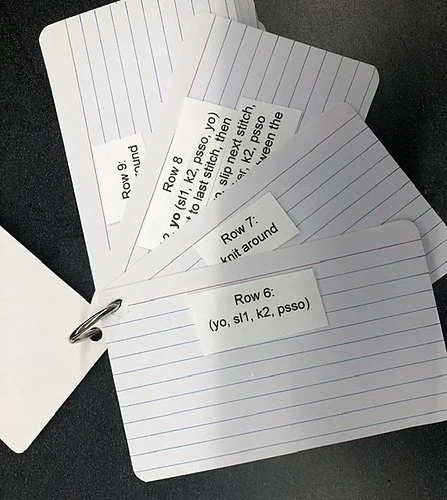 Row 9:
Row 8
yo (sl1, k2, psso, yo)
to last stitch, then
slip next stitch,
k2, psso
the
Row 7:
knit around
Row 6:
(yo, sl1, k2, psso)